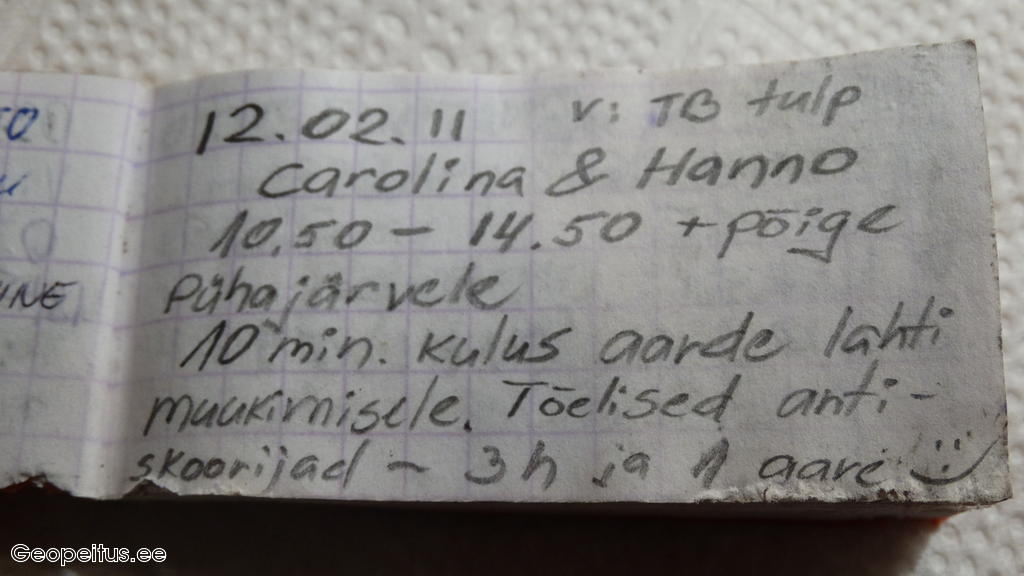 12.02.11 v: TB tulp
Carolina & Hanno
10.50 – 14.50 + põige
Pühajärvele
10 min. kulus aarde lahti
muukimisele. Tõelised anti-
skoorijad – 3h ja 1 aare :)
Geopeitus.ee